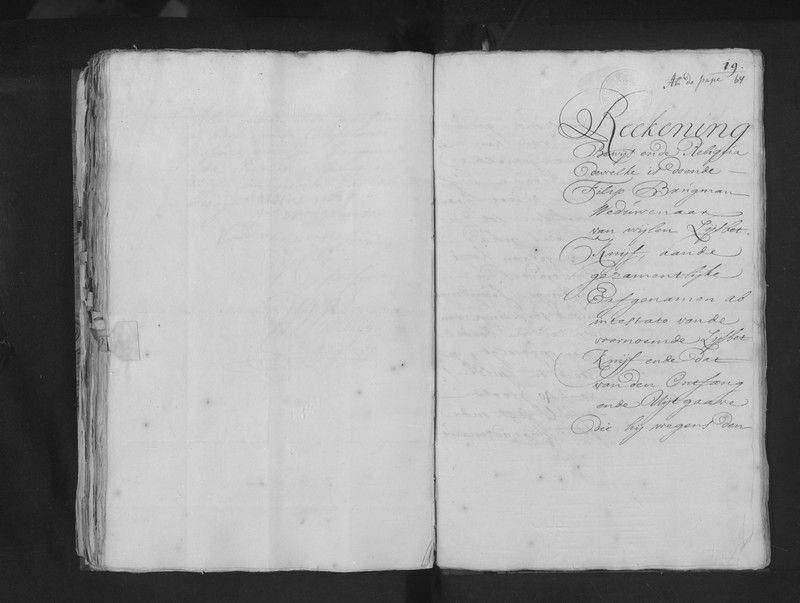 19.
de pape 64
Reckening
Bewijs ende Reliqua
dewelke is doende
Filip Brugman
Weduwenaar
van wijlen Lijsbet
Knijf, aande
gezamentlijke
Erfgenamen ab
intestato vande
voornoemde Lijsbet
Knijf ende Dat
van den Ontfang
ende Uijtgaave
die hij wegens den